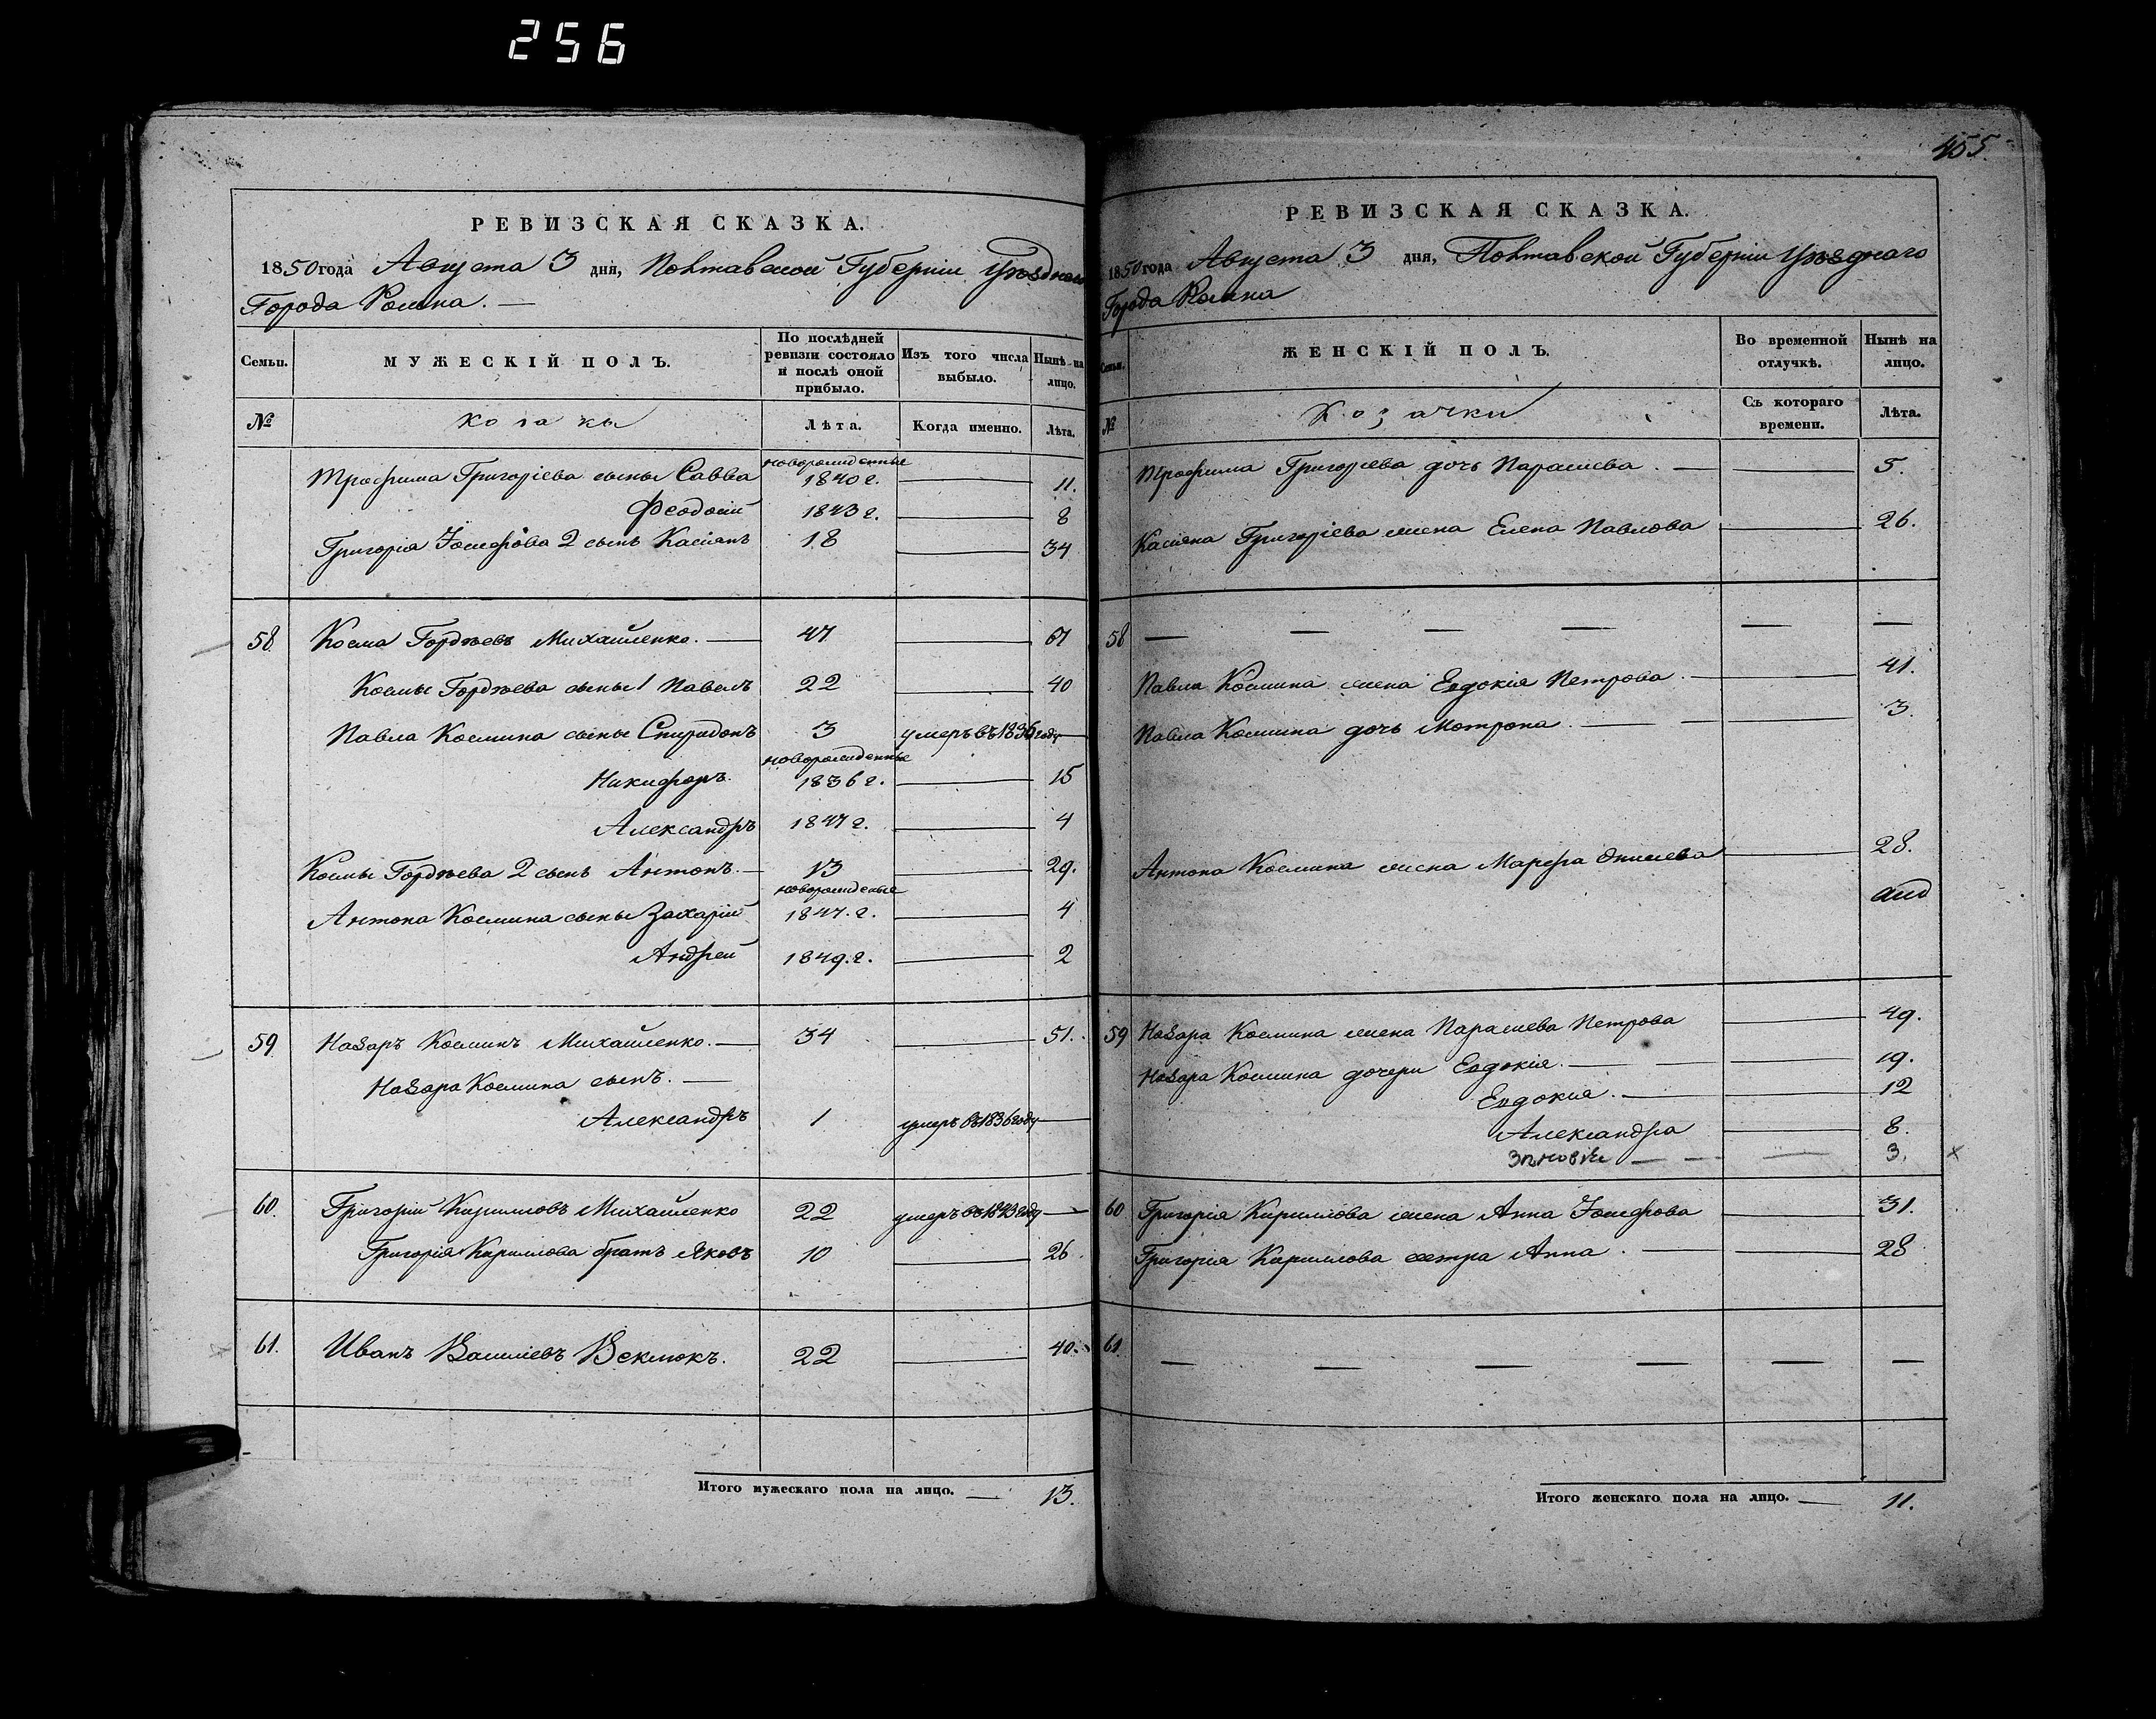 256
455.
РЕВИЗСКАЯ СКАЗКА.
1850 года Августа 3 дня, Полтавской Губернiи Уѣзднаго
Города Ромна. —
Семьи. МУЖЕСКІЙ ПОЛЪ. По послѣдней ревизіи состояло и послѣ оной прибыло. Изъ того числа выбыло. Нынѣ на лицо.
№ Козаки Лѣта. Когда именно. Лѣта.
Трофима Григоріева сыны Савва новорожденные 1840 г. — 11.
Феодосій 1843 г. — 8
Григорія Іосифова 2 сынъ Касіянъ 18 — 34
58. Косма Гордѣевъ Михайленко. — 47 — 67
Космы Гордѣева сыны 1 Павелъ 22 — 40
Павла Космина сыны Спиридонъ 3 умеръ въ 1836 году —
Никифоръ. новорожденные 1836 г. — 15
Александръ 1847 г. — 4
Космы Гордѣева 2 сынъ Антонъ. — 13 — 29.
Антона Космина сыны Захарій новорожденые 1847. г. — 4
Андрей 1849. г. — 2
59 Назаръ Косминъ Михайленко. — 34 — 51.
Назара Космина сынъ. —
Александръ 1 умеръ въ 1836 году —
60. Григорій Кириловъ Михайленко 22 умеръ въ 1843 году —
Григорія Кирилова братъ Яковъ 10 — 26
61. Иванъ Василіевъ Веклюкъ. 22 — 40.
Итого мужескаго пола на лицо. — 13.
РЕВИЗСКАЯ СКАЗКА.
1850 года Августа 3 дня, Полтавской Губерніи Уѣзднаго
Города Ромна
Семьи. ЖЕНСКІЙ ПОЛЪ. Во временной отлучкѣ. Нынѣ на лицо.
№ Козачки Съ котораго времени. Лѣта.
Трофима Григоріева дочь Парасшева. — — 5.
Касіяна Григоріева жена Елена Павлова — 26.
58 — — — — — —
Павла Космина жена Евдокія Петрова. — — 41.
Павла Космина дочь Мотрона. — — 3.
Антона Космина жена Марфа — 28.
59 Назара Космина жена Парасшева Петрова — 49.
Назара Космина дочери Евдокія. — — 19.
Евдокия. — — 12
Александра — 8.
Зѣновія — — — 3. х
60 Григорія Кирилова жена Анна Іосифова — 31.
Григорія Кирилова сестра Анна. — — 28
61. — — — — — —
Итого женскаго пола на лицо. — 11.